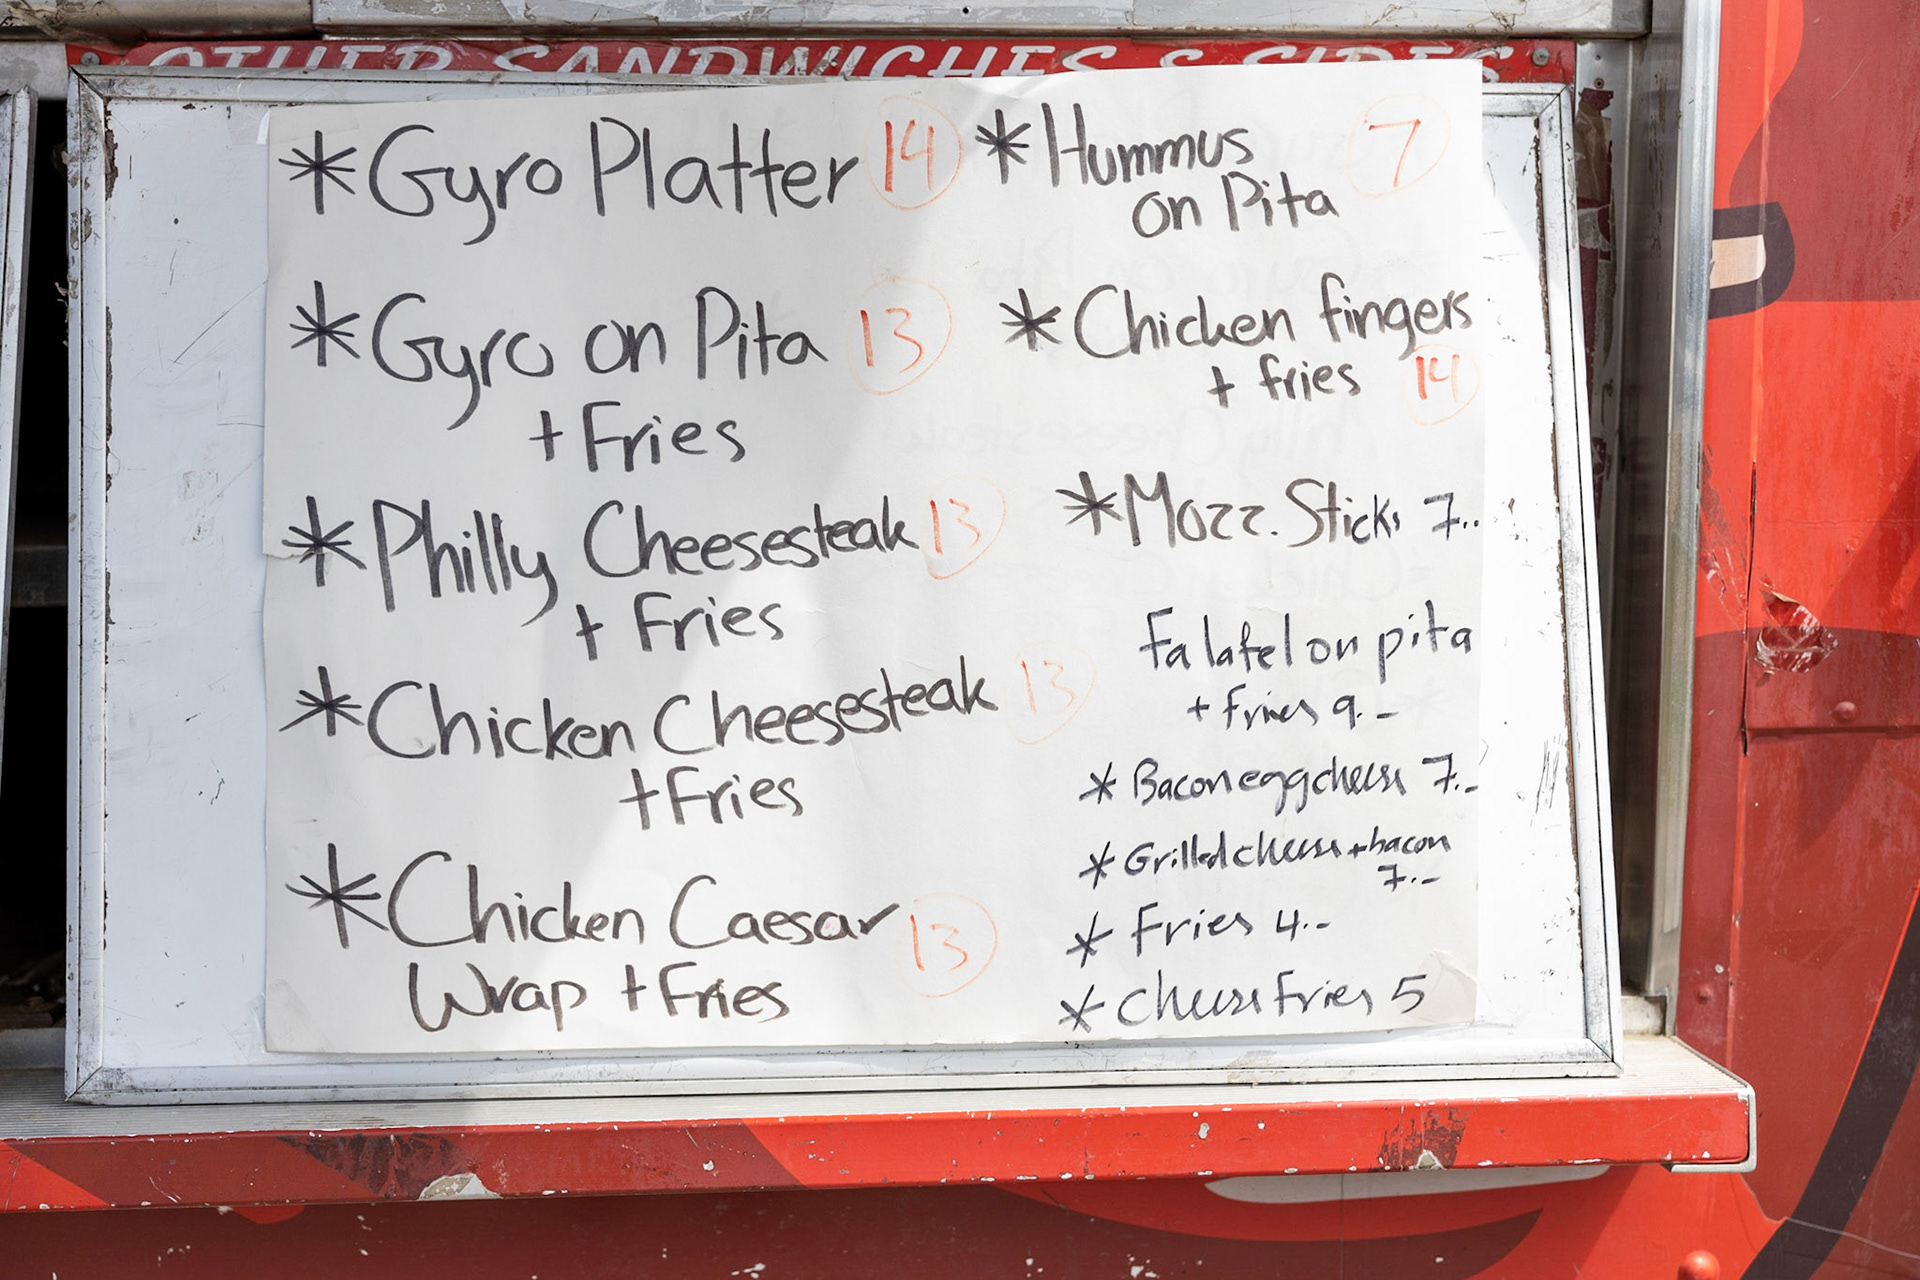 OTHER SANDWICHES & SIDES
* Gyro Platter 14
* Gyro on Pita 13
+ Fries
* Philly Cheesesteak 13
+ Fries
* Chicken Cheesesteak 13
+ Fries
* Chicken Caesar 13
Wrap + Fries
* Hummus 7
on Pita
* Chicken fingers
+ fries 14
* Mozz. Sticks 7..
Falafel on pita
+ fries 9.-
* Bacon egg cheese 7.-
* Grilled cheese + bacon
7.-
* Fries 4.-
* Cheese Fries 5